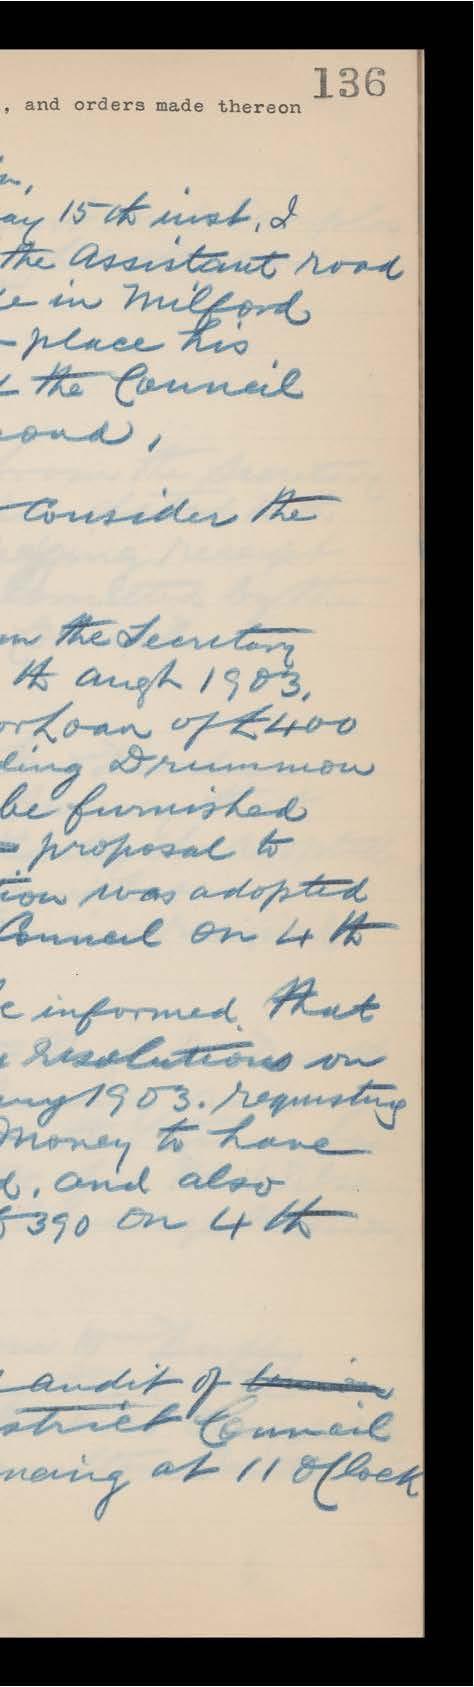 136
, and orders made thereon
ay 15th inst, I
the Assistant road
e in Milford
place his
the Council
oad,
consider the
m the Secretary
th augt 1903,
or Loan of £400
ding Drummon
be furnished
proposal to
tion was adopted
Council on 4th
e informed. that
resolutions on
ary 1903. requesting
Money to have
d, and also
£390 on 4th
audit of
strict Council
ncing at 11 OClock